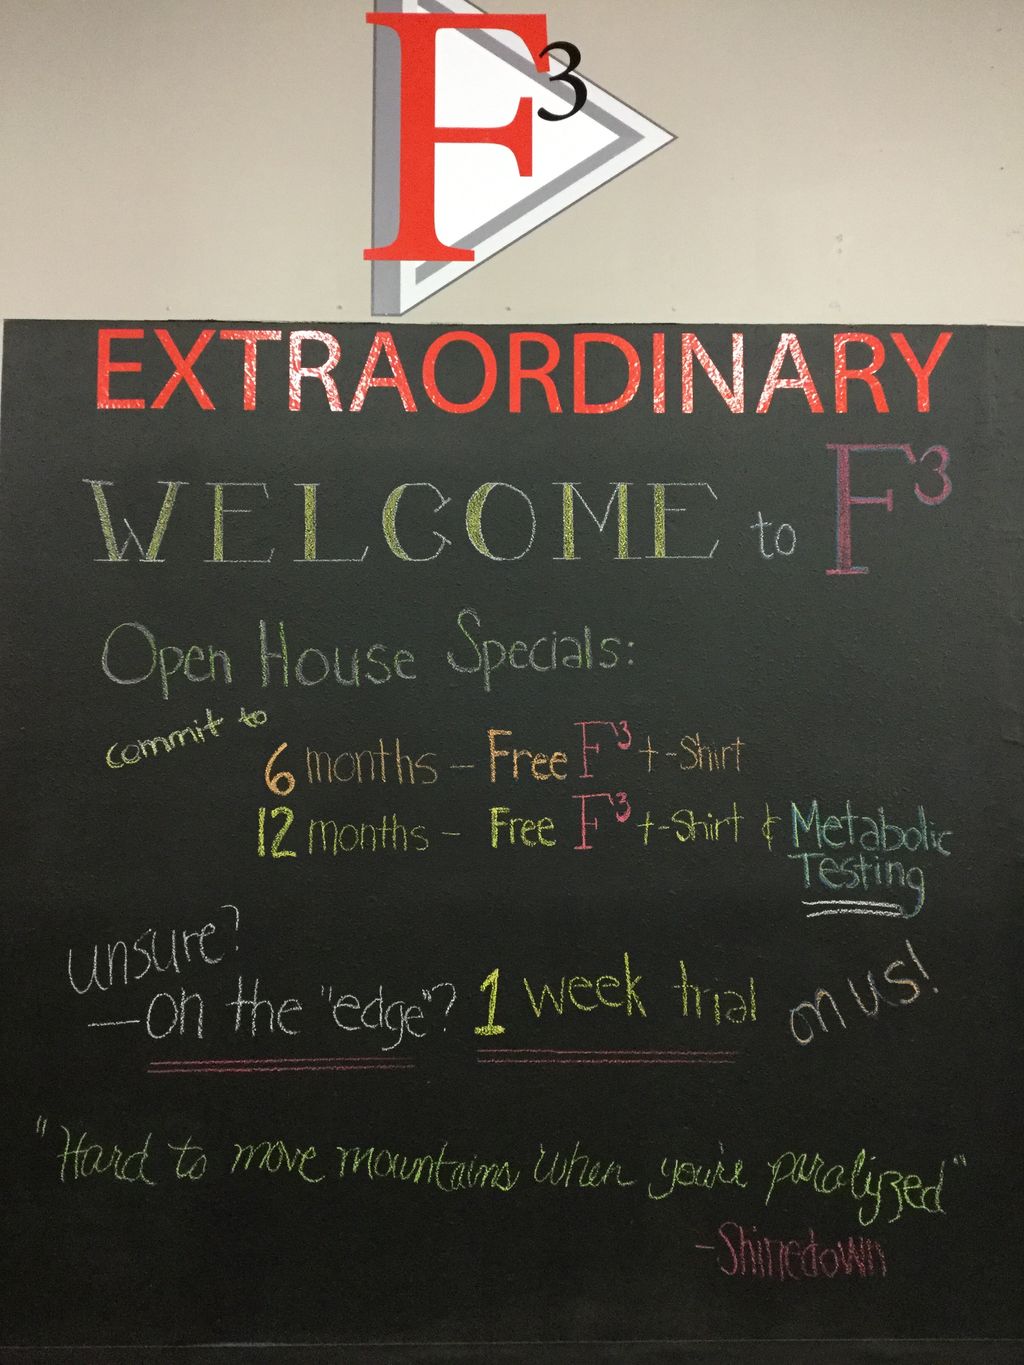 F³
EXTRAORDINARY
WELCOME to F³
Open House Specials:
commit to
6 months - Free F³ t-shirt
12 months - Free F³ t-shirt & Metabolic
Testing
unsure?
- on the "edge"? 1 week trial on us!
"Hard to move mountains when you're paralyzed"
- Shinedown